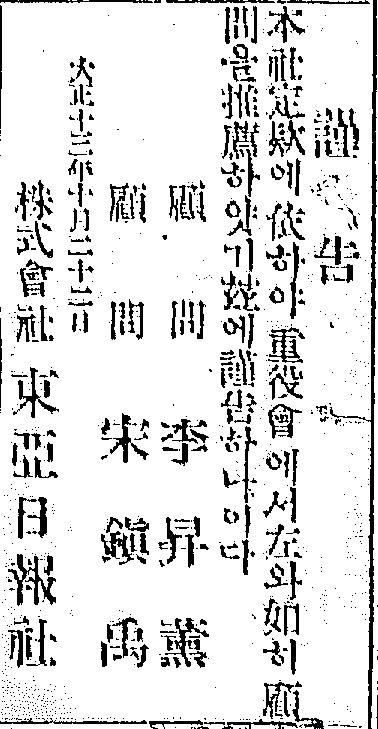 謹告
本社定款에依하야重役會에서左와如히顧
問을推薦하얏기玆에謹告하나이다
顧問 李昇薰
顧問 宋鎭禹
大正十三年十月二十二日
株式會社東亞日報社